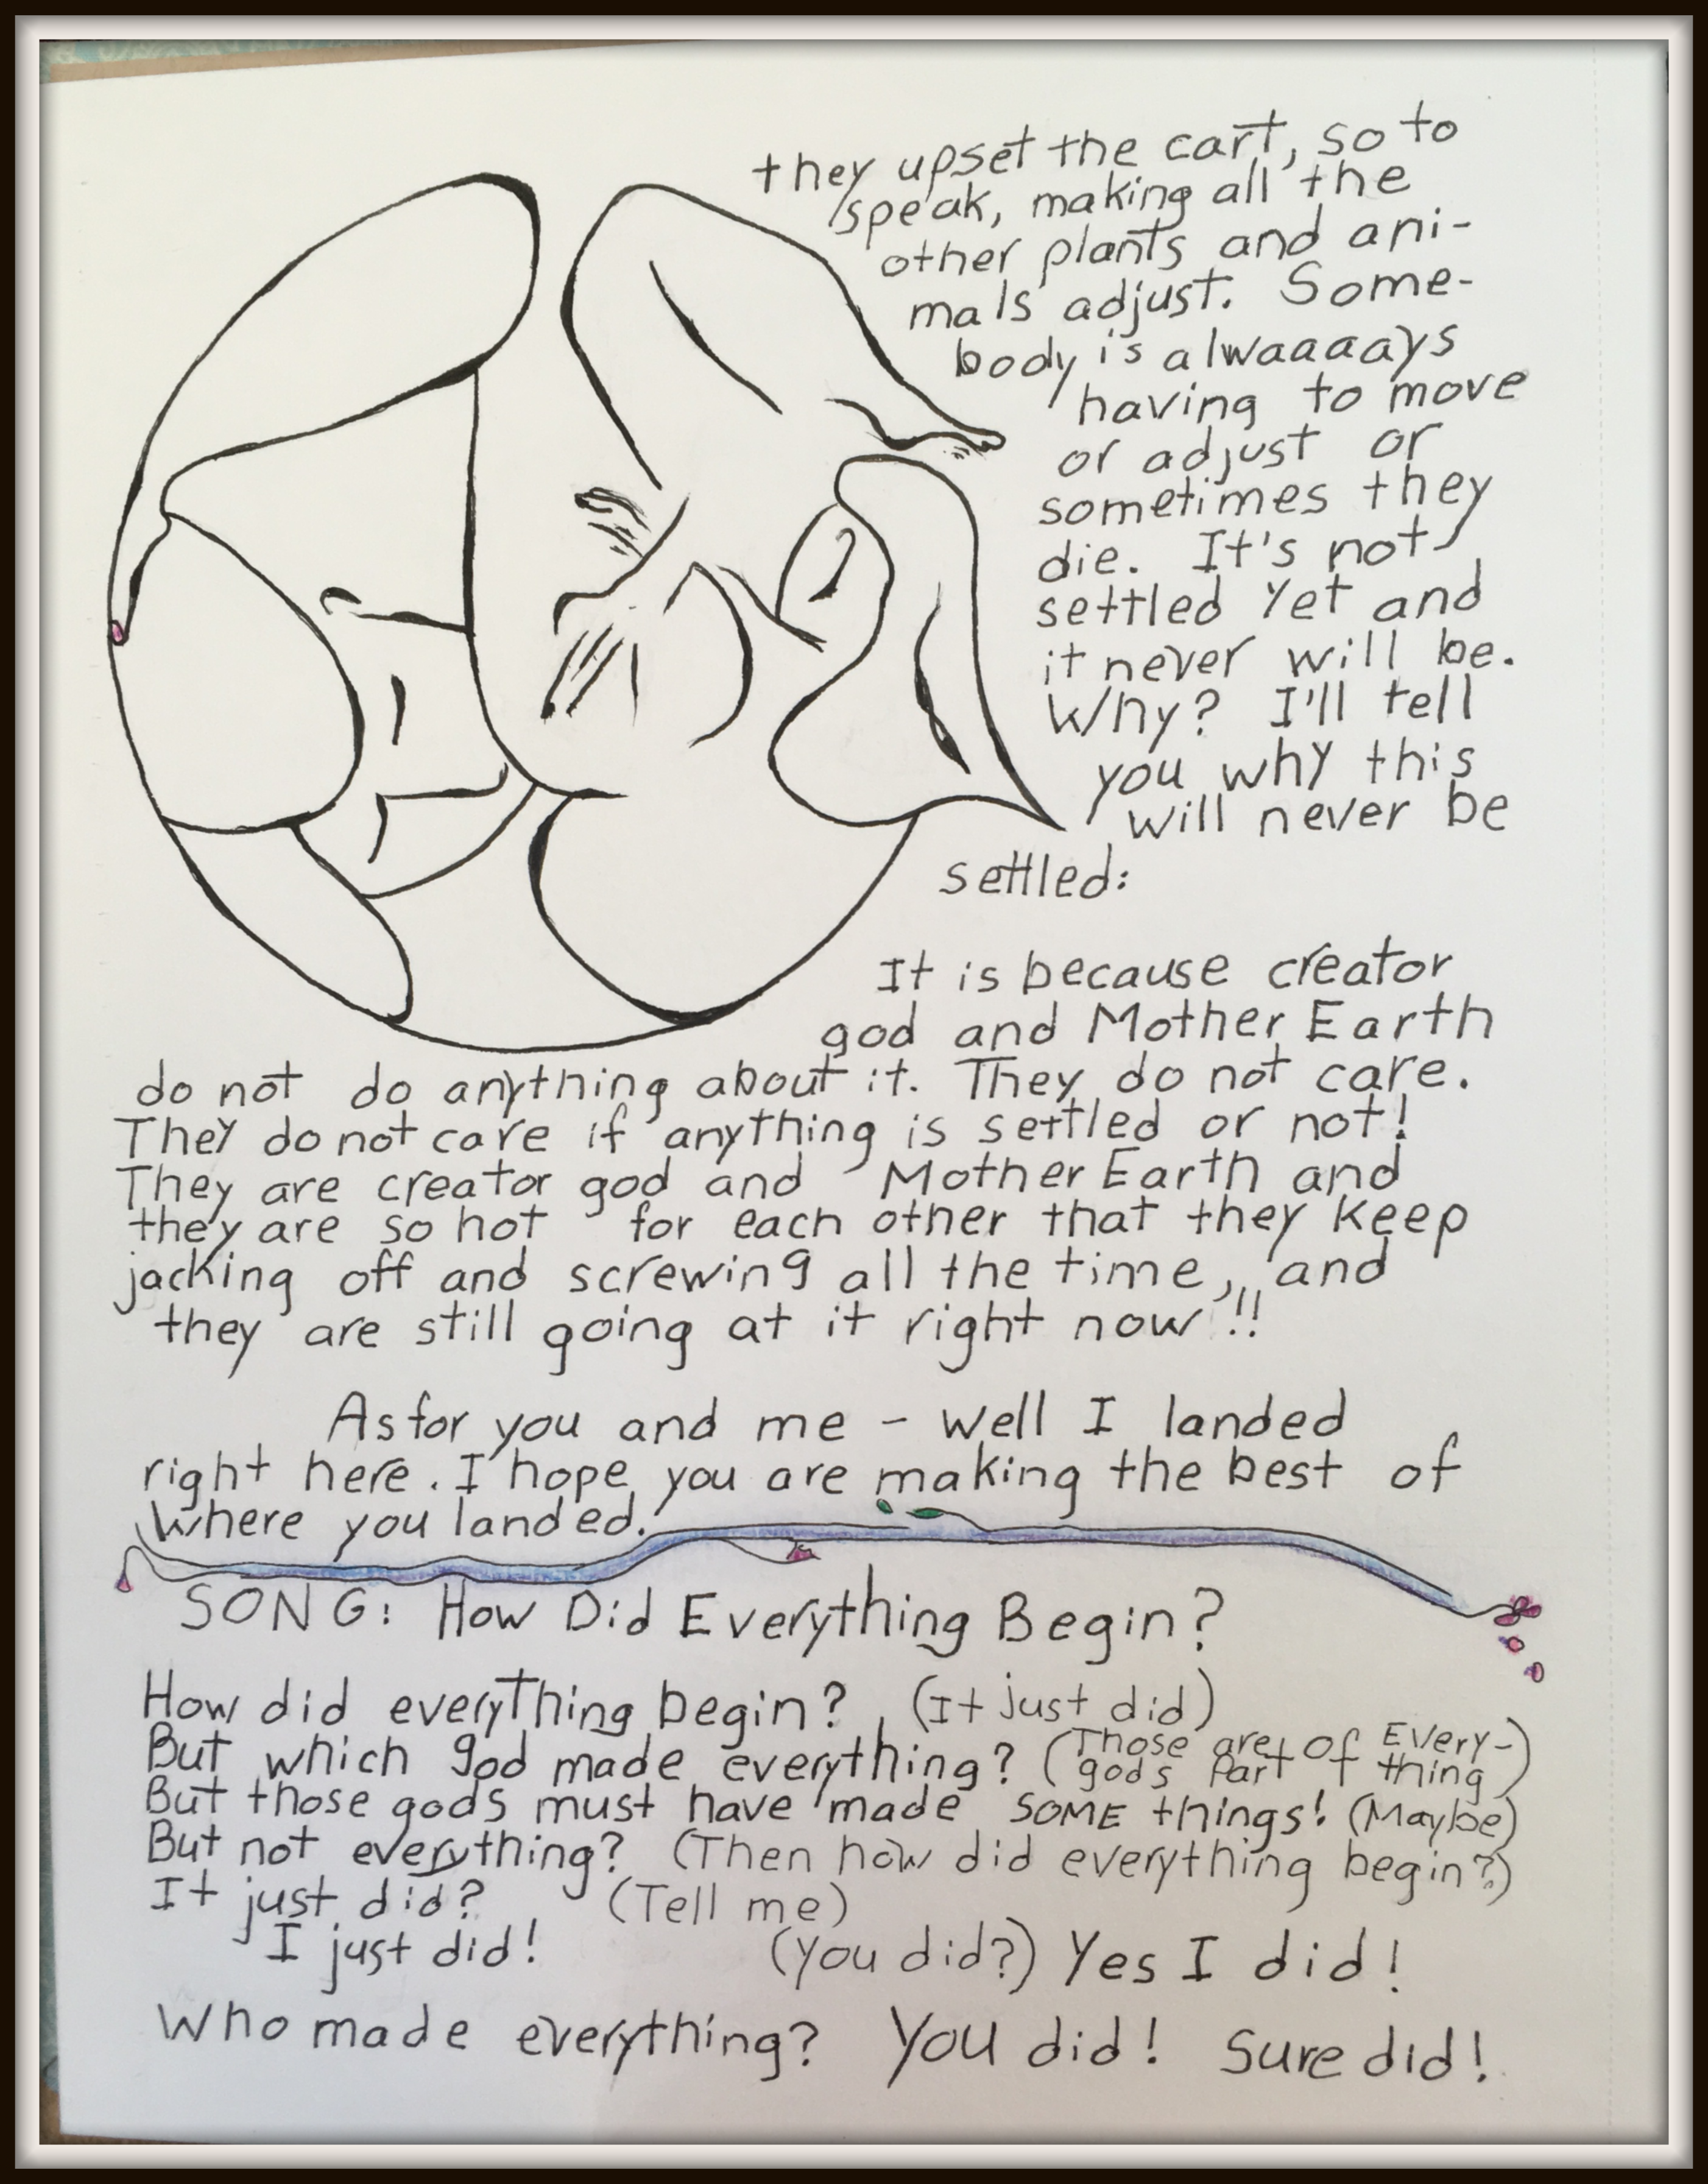 they upset the cart, so to
speak, making all the
other plants and ani-
mals adjust. Some-
body is alwaaaays
having to move
or adjust or
sometimes they
die. It's not
settled yet and
it never will be.
Why? I'll tell
you why this
will never be
settled:
It is because creator
god and Mother Earth
do not do anything about it. They do not care.
They do not care if anything is settled or not!
They are creator god and Mother Earth and
they are so hot for each other that they keep
jacking off and screwing all the time, and
they are still going at it right now!!!
As for you and me - well I landed
right here. I hope you are making the best of
where you landed.
SONG: How Did Everything Begin?
How did everything begin? (It just did)
But which god made everything? (Those gods are part of Every-thing)
But those gods must have made SOME things! (Maybe)
But not everything? (Then how did everything begin?)
It just did? (Tell me)
I just did! (You did?) Yes I did!
Who made everything? You did! Sure did!